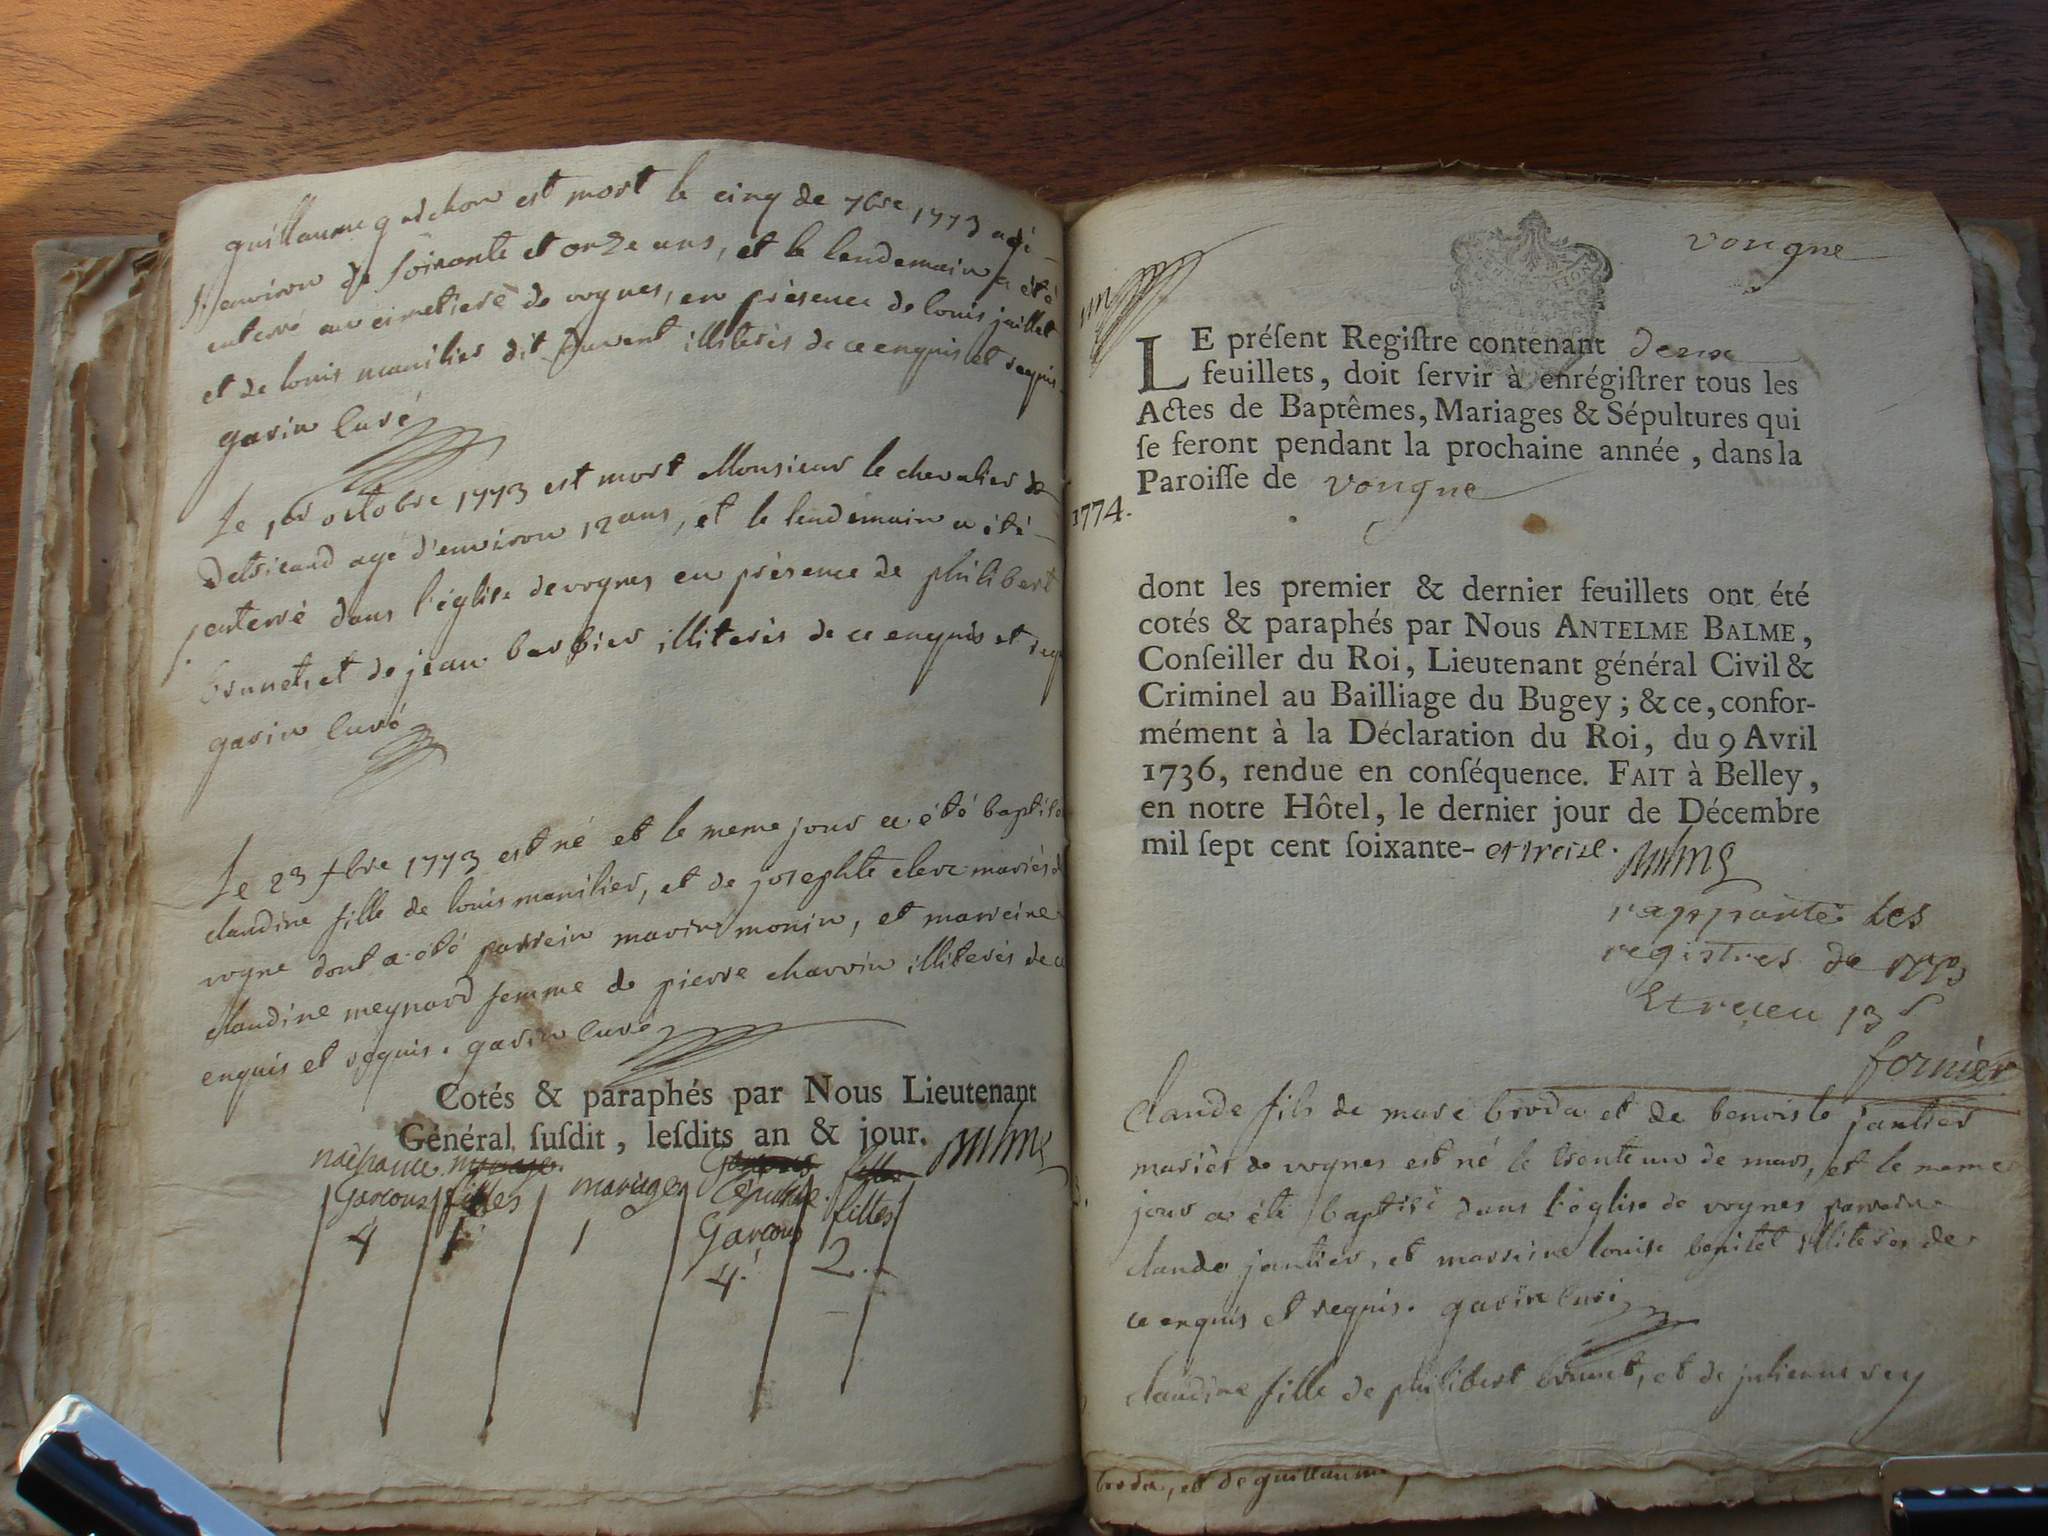 guillaume guichon est mort le cinq de 7bre 1773 agé
d'environ de soixante et onze ans, et le lendemain a été
enterré au cimetiere de vognes, en présence de louis juillet
et de louis manilier dit illiterés de ce enquis et requis
gavin Curé
Le 1er octobre 1773 est mort Monsieur le chevalier de
agé d'environ 12 ans, et le lendemain a été
enterré dans l'église de vognes en présence de philibert
brunet, et de jean barbier illiterés de ce enquis et requ
gavin Curé
Le 23 1773 est né et le meme jour a été baptisé
claudine fille de louis manilier, et de josephte clerc mariés d
vogne dont a été parrein marin monin, et marreine
claudine meynard femme de pierre charvin illiterés de c
enquis et requis. gavin Curé
Cotés & paraphés par Nous Lieutenant
Général susdit, lesdits an & jour.
naissance mariages
Garcons filles mariages sépulture filles
4 1 1 Garcons 2
4.
vougne
LE préſent Regiſtre contenant deux
feuillets, doit ſervir à enrégiſtrer tous les
Actes de Baptêmes, Mariages & Sépultures qui
ſe feront pendant la prochaine année, dans la
Paroiſſe de vougne
1774.
dont les premier & dernier feuillets ont été
cotés & paraphés par Nous ANTELME BALME,
Conſeiller du Roi, Lieutenant général Civil &
Criminel au Bailliage du Bugey ; & ce, confor-
mément à la Déclaration du Roi, du 9 Avril
1736, rendue en conſéquence. FAIT à Belley,
en notre Hôtel, le dernier jour de Décembre
mil ſept cent ſoixante- et treize.
rapporté les
registres de 1773
Et reçeu 13 s
fornier
Claude fils de marc broda et de benoiste jantier
mariés de vognes est né le trente un de mars, et le meme
jour a été baptisé dans l'église de vognes parrein
claude jantier, et marreine louise illiterés de
ce enquis et requis. gavin Curé
claudine fille de philibert brunet, et de julienne rey
broda, et de guillaume